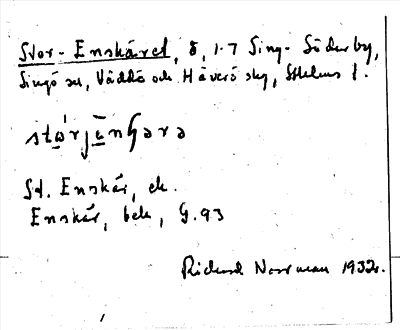 Stor-Enskäret, ö, 1.7 Sing-Söderby,
Singö sn, Väddö och Häverö skg, Sthlms l.
Jd. Enskär, ek.
Enskär, bek, G. 93
Richard Norrman 1932.